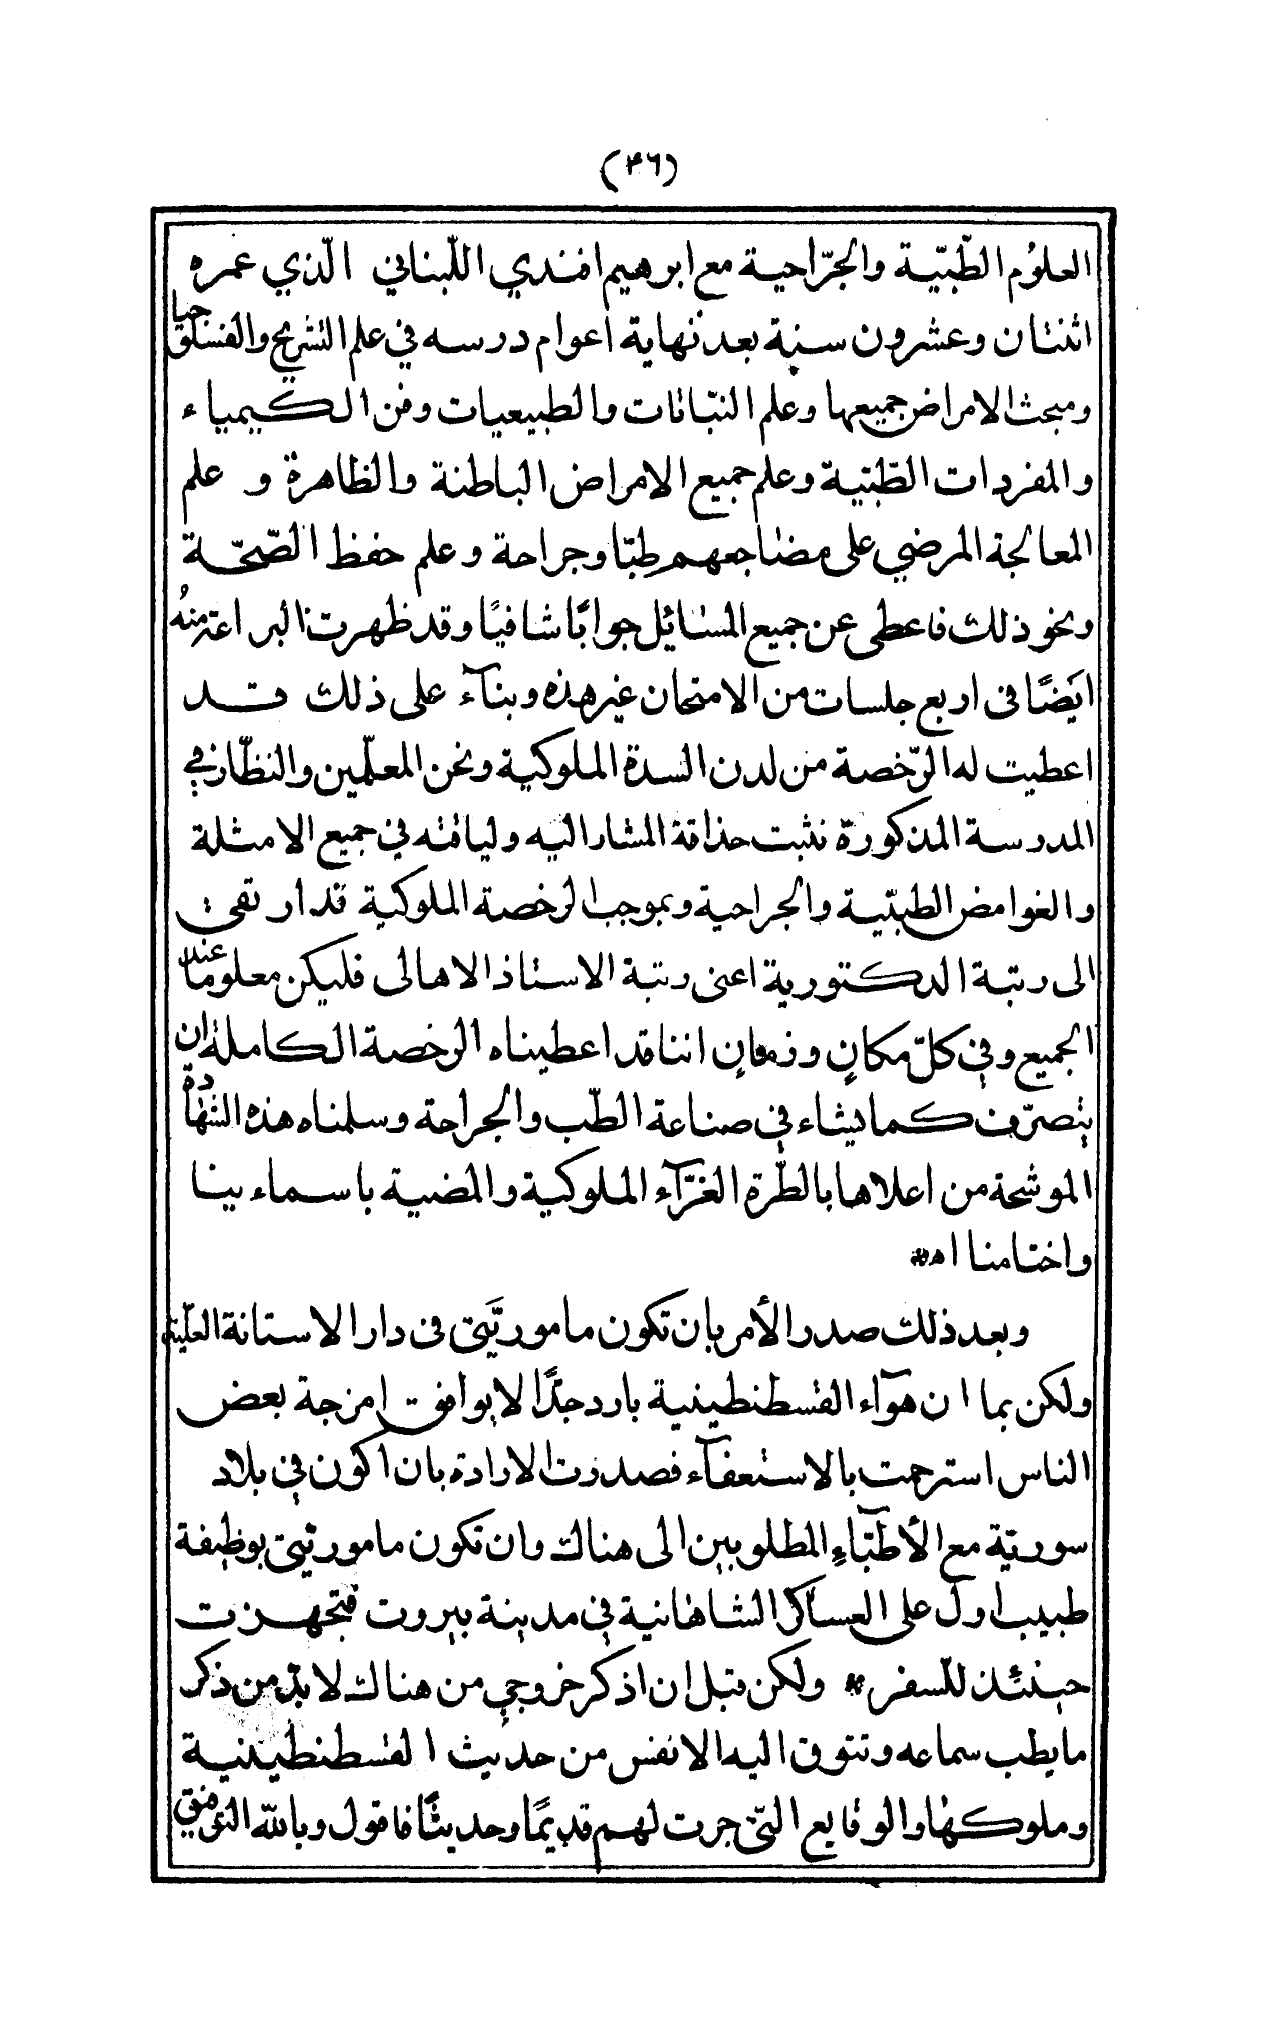 (٣٦)
العلوُم الطّبيّة والجرّاحية مع ابرهيم افندي اللّبناني الّذي عمره
اثنتان وعشرون سنة بعد نهاية اعوام درسه في علم التشريح والفسلوجيا
ومبحث الامراض جميعها وعلم النبّاتات والطبيعيات وفن الكيمياء
والمفردات الطّبّية وعلم جميع الامراض الباطنة والظاهرة و علم
المعالجة المرضي على مضاجعهم طبّا وجراحة وعلم حفظ الصّحّة
ونحو ذلك فاعطى عن جميع المسايل جوابًا شافيًا وقد ظهرت البراعة منهُ
ايضًا فى اربع جلسات من الامتحان غير هذه وبنآء على ذلك قد
اعطيت له الرّخصة من لدن السدة الملوكية ونحن المعلّمين والنظّار في
المدرسة المذكورة نثبت حذاقة المشار اليه ولياقته في جميع الامثلة
والغوامض الطبيّة والجراحية وبموجب الرخصة الملوكية قد ارتقى
الى رتبة الدكتورية اعنى رتبة الاستاذ الاهالى فليكن معلوما عند
الجميع وفي كلّ مكانٍ وزمانٍ اننا قد اعطيناه الرخصة الكاملة ان
يتصرّف كما يشاء في صناعة الطّب والجراحة وسلمناه هذه الشهادة
الموشحة من اعلاها بالطّرة الغرّآء الملوكية والمضية باسماء ينا
واختامنا اه*
وبعد ذلك صدر الأمر بان تكون ماموريّتى فى دار الاستانة العليّة
ولكن بما ان هوآء القسطنطينية بارد جدًّا لا يوافق امزجة بعض
الناس استرحمت بالاستعفآء فصدرت الارادة بان اكون في بلاد
سوريّة مع الأطبّآءِ المطلوبين الى هناك وان تكون ماموريّتى بوظيفة
طبيب اول على العساكر الشاهانية في مدينة بيروت فتجهزت
حينئذ للسفر * ولكن قبل ان اذكر خروجي من هناك لا بدّ من ذكر
ما يطب سماعه وتتوق اليه الانفس من حديث القسطنطينية
وملوكها والوقايع الّتي جرت لهم قديمًا وحديثًا فاقول وبالله التوفيق